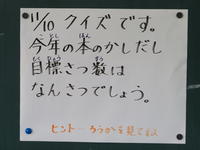 11/10 クイズです。
今年の本のかしだし
目標さつ数は
なんさつでしょう。
ヒント…ろうかを見てね